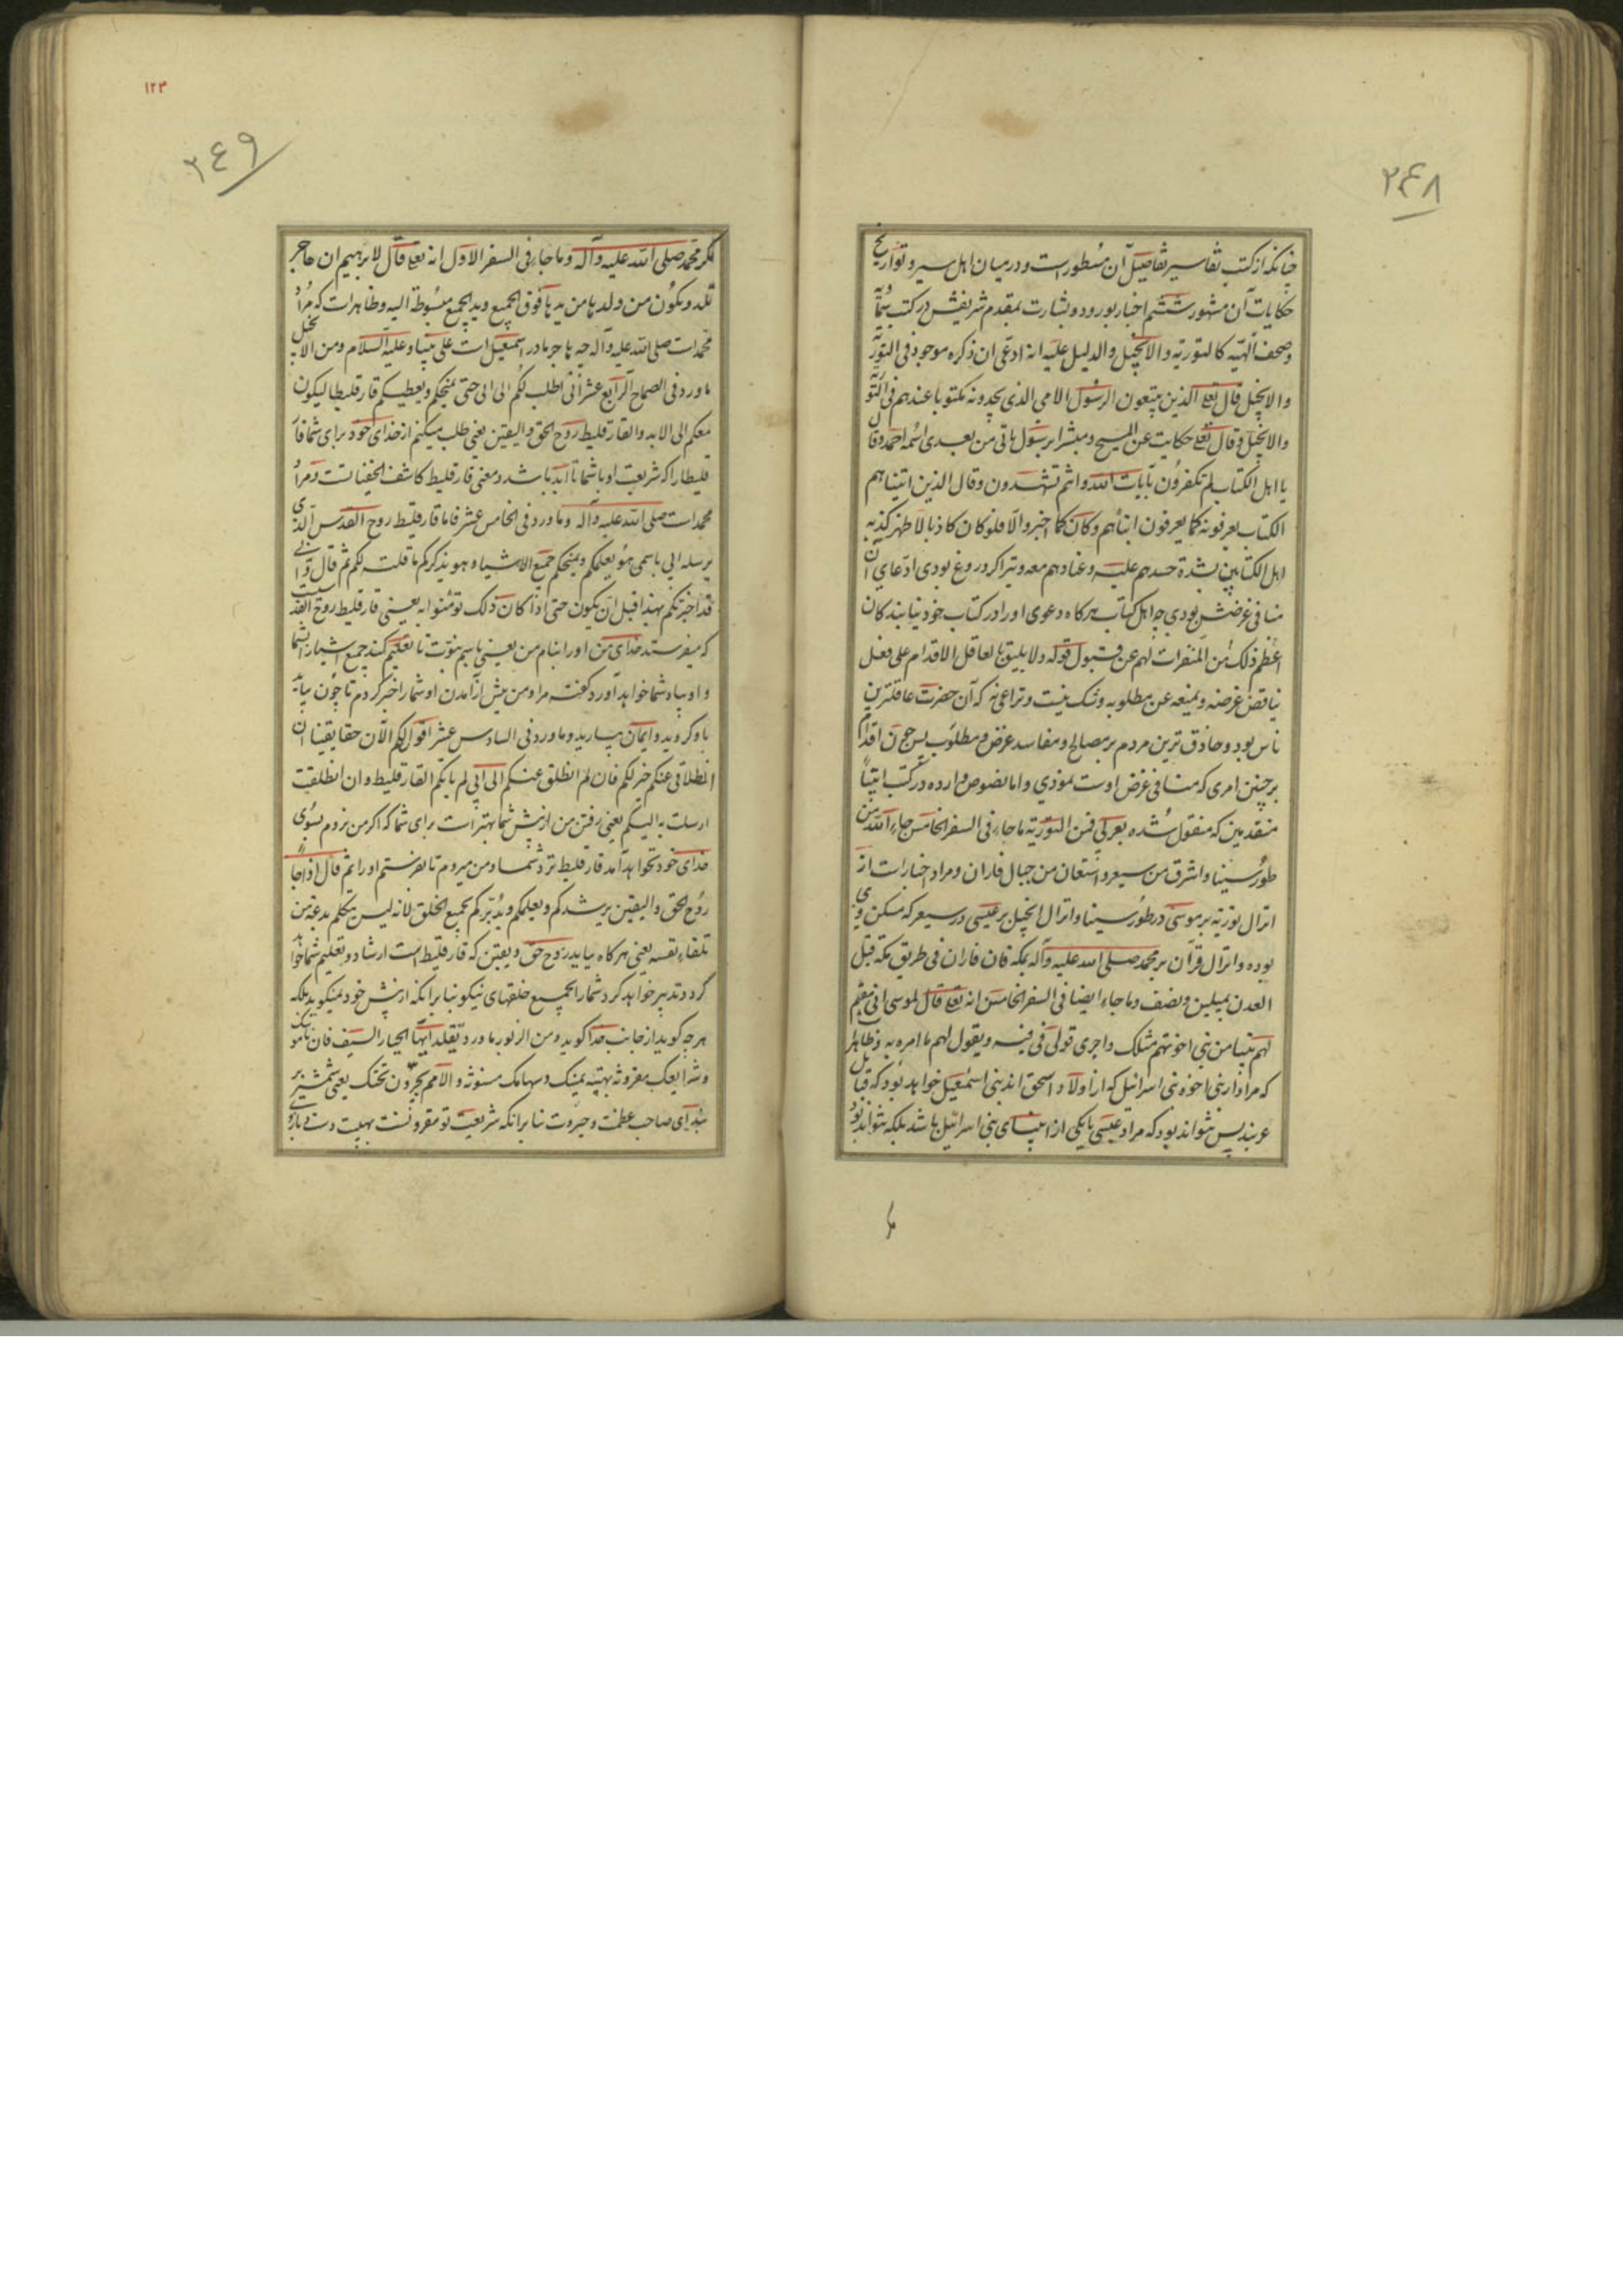 ۲۴۸
چنانکه از کتب تفاسیر تفاصیل آن مسطورست و در میان اهل سیر و تواریخ
حکایات آن مشهور ششم اخبار بورود و بشارت بمقدم شریفش در کتب
و صحف الهیه کالتوریة والانجیل والدلیل علیه انه ادعی ان ذکره موجود فی التوریة
والانجیل قال تعا الذین یتبعون الرسول الامی الذی یجدونه مکتوبا عندهم فی التو
والانجیل و قال تعا حکایت عن المسیح و مبشرا برسول یاتی من بعدی اسمه احمد و قال
یا اهل الکتاب لم تکفرون بآیات الله و انتم تشهدون و قال الذین اتیناهم
الکتاب یعرفونه کما یعرفون ابنائهم و کان کما اخبر و الا فلو کان کاذبا لاظهر کذبه
اهل الکتابین بشدة حسدهم علیه و عنادهم معه و نیز اگر دروغ بودی ادعای آن
منافی غرضش بودی چه اهل کتاب هرگاه دعوی او را در کتاب خود نیابند کان
اعظم ذلک من المنفرات لهم عن قبول قوله و لا یلیق بالعاقل الاقدام علی فعل
یناقض غرضه و یمنعه عن مطلوبه و شک نیست و نزاعی نه که آن حضرت عاقلترین
ناس بود و حاذق ترین مردم بر مصالح و مفاسد غرض و مطلوب پس چون اقدام
بر چنین امری که منافی غرض اوست نمودی و اما نصوص وارده در کتب انبیا
متقدمین که منقول شده بعربی فمن التوریة ما جاء فی السفر الخامس جاء الله من
طور سینا و اشرق من سیعر و استعان من جبال فاران و مراد اخبارات از
انزال توریة بر موسی در طور سینا و انزال انجیل بر عیسی در سیعر که مسکن وی
بوده و انزال قرآن بر محمد صلی الله علیه وآله بمکه فان فاران فی طریق مکه قبل
العدن بمیلین و نصف و ما جاء ایضا فی السفر الخامس انه تعا قال لموسی انی مقیم
لهم نبیا من بنی اخوتهم مثلک و اجری قولی فی فیه و یقول لهم ما امره به و ظاهر
که مراد از بنی اخوه بنی اسرائیل که از اولاد اسحق اند بنی اسمعیل خواهد بود که قبایل
عربند پس نتواند بود که مراد عیسی یا یکی از انبیای بنی اسرائیل باشد بلکه نتواند بود
۱۲۳
۲۴۹
مگر محمد صلی الله علیه وآله و ما جاء فی السفر الاول انه تعا قال لابرهیم ان هاجر
تلد و یکون من ولدها من یدها فوق الجمیع و ید الجمیع مبسوطة الیه و ظاهرات که مراد
محمد است صلی الله علیه وآله چه هاجر مادر اسمعیل است علی نبینا و علیه السلام و من الانجیل
ما ورد فی الصحاح الرابع عشر انی اطلب لکم الی ابی حتی یمنحکم و یعطیکم فارقلیطا لیکون
معکم الی الابد والفارقلیط روح الحق والیقین یعنی طلب میکنم از خدای خود برای شما فار
قلیطا را که شریعت او با شما تا ابد باشد و معنی فارقلیط کاشف الخفیاتست و مراد
محمد است صلی الله علیه وآله و ما ورد فی الخامس عشر فاما فارقلیط روح القدس الذی
یرسله ابی باسمی هو یعلمکم و یمنحکم جمیع الاشیاء و هو یذکرکم ما قلت لکم ثم قال و انی
قد اخبرتکم بهذا قبل ان یکون حتی اذا کان ذلک تؤمنوا به یعنی فارقلیط روح القدس
که میفرستد خدای من او را بنام من یعنی باسم نبوت تا تعلیم کند جمیع اشیا را بشما
و او بیاد شما خواهد آورد گفته مرا و من پیش از آمدن او شما را خبر کردم تا چون بیاید
باو گروید و ایمان بیارید و ما ورد فی السادس عشر اقول لکم الآن حقا یقینا ان
انطلاقی عنکم خیر لکم فان لم انطلق عنکم الی ابی لم یاتکم الفارقلیط و ان انطلقت
ارسلت به الیکم یعنی رفتن من از پیش شما بهتر است برای شما که اگر من نروم بسوی
خدای خود نخواهد آمد فارقلیط نزد شما و من میروم تا بفرستم او را ثم قال اذا جاء
روح الحق والیقین یرشدکم و یعلمکم و یدبرکم بجمیع الخلق لانه لیس یتکلم بدعة من
تلقاء نفسه یعنی هرگاه بیاید روح حق و یقین که فارقلیط است ارشاد و تعلیم شما خواهد
کرد و تدبیر خواهد کرد شما را بجمیع خلقهای نیکو بنا برانکه از پیش خود نمیگوید بلکه
هرچه گوید از جانب خدا گوید و من الزبور ما ورد تقلد ایها الجبار السیف فان ناموسک
و شرایعک مقرونة بهیبة یمینک و سهامک مسنونة و الامم یخرون تحتک یعنی شمشیر بر
بند ای صاحب عظمت و جبروت بنا برانکه شریعت تو مقرونست بهیبت دست و بازوی